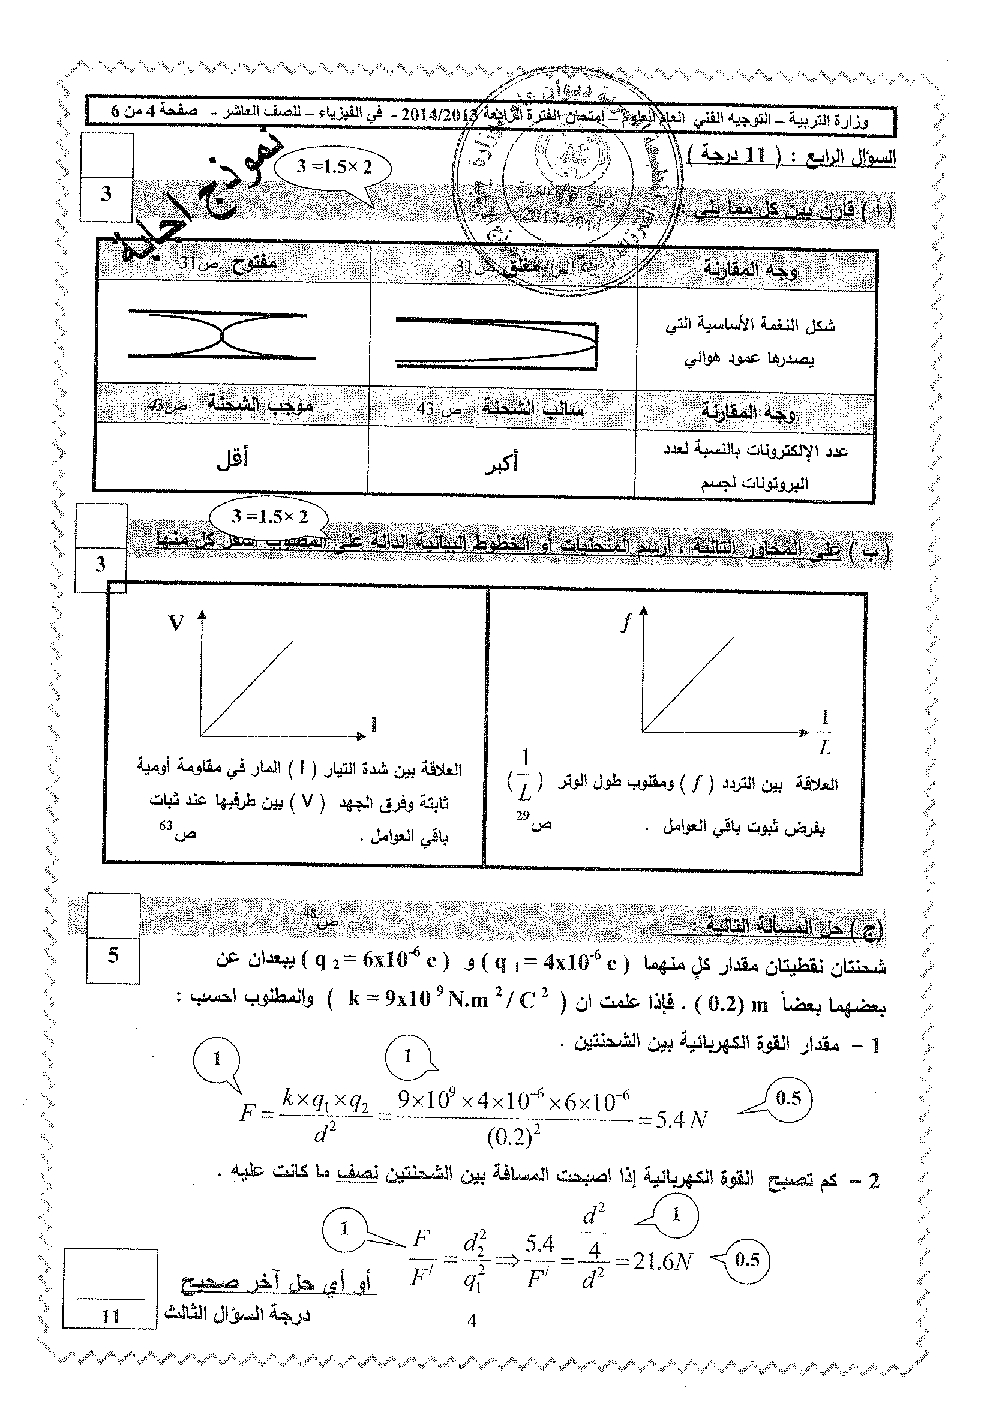 وزارة التربية – التوجيه الفني العام للعلوم – امتحان الفترة الرابعة 2014/2013 - في الفيزياء – للصف العاشر - صفحة 4 من 6
نموذج اجابة
السؤال الرابع : ( 11 درجة )
3 =1.5× 2
3
( أ ) قارن بين كل مما يلي
وجه المقارنة مغلق ص31 مفتوح ص31
شكل النغمة الأساسية التي
يصدرها عمود هوائي
وجه المقارنة سالب الشحنة ص 43 موجب الشحنة ص43
عدد الإلكترونات بالنسبة لعدد
البروتونات لجسم
أكبر أقل
3 =1.5× 2
3
( ب ) على المحاور التالية ، ارسم المنحنيات أو الخطوط البيانية الدالة على المطلوب أسفل كل منها
f
1/L
العلاقة بين التردد ( f ) ومقلوب طول الوتر ( 1/L )
بفرض ثبوت باقي العوامل . ص29
V
I
العلاقة بين شدة التيار ( I ) المار في مقاومة أومية
ثابتة وفرق الجهد ( V ) بين طرفيها عند ثبات
باقي العوامل . ص63
5
(ج ) حل المسألة التالية . ص48
شحنتان نقطيتان مقدار كلٍ منهما ( q 1 = 4x10-6 c ) و ( q 2 = 6x10-6 c ) يبعدان عن
بعضهما بعضاً m (0.2) . فإذا علمت ان ( k = 9x10 9 N.m 2 / C 2 ) والمطلوب احسب :
1 – مقدار القوة الكهربائية بين الشحنتين .
1 1 0.5
F = k×q1×q2 / d2 = 9×109×4×10-6×6×10-6 / (0.2)2 = 5.4 N
2 – كم تصبح القوة الكهربائية إذا اصبحت المسافة بين الشحنتين نصف ما كانت عليه .
1 1 0.5
F / F/ = d22 / q12 ⇒ 5.4 / F/ = d2 / 4 / d2 = 21.6N
أو أي حل آخر صحيح
11 درجة السؤال الثالث
4